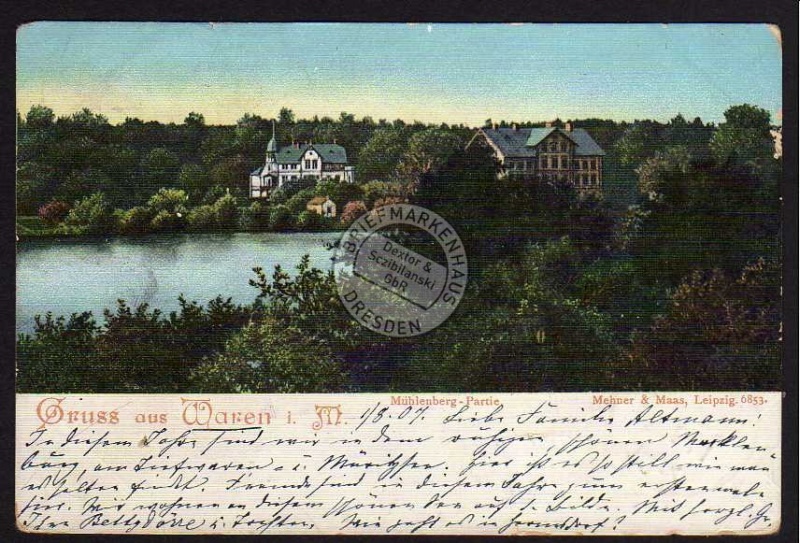 BRIEFMARKENHAUS
Dexter &
Sczibilanski
GbR
DRESDEN
Mühlenberg-Partie.
Mehner & Maas, Leipzig. 6853.
Gruss aus Waren i. M. 1/8. 07. Liebe Familie Altmann!
In diesem Jahre sind wir in dem ruhigen schönen Mecklen-
burg, am Tiefwaren- u. Müritzsee. Hier ist es so still wie man
es selten findet. Fremde sind in diesem Jahre zum ersten male
hier. Wir wohnen an diesem schönen See auf d. Bilde. Mit herzl. Gr.
Ihre u. Tochter. Wie geht es in Hermsdorf?